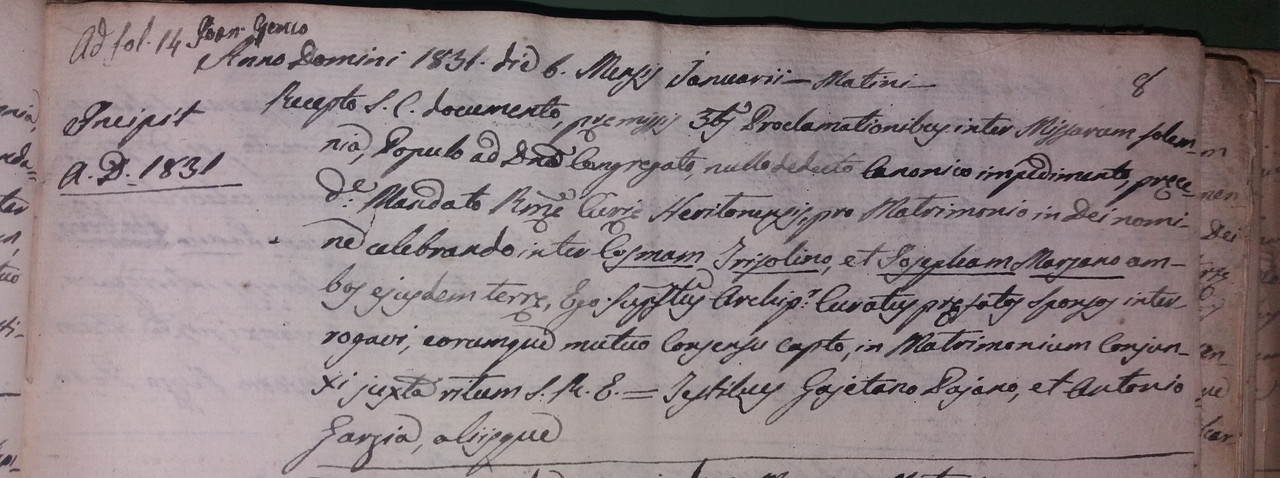 Ad fol. 14
Anno Domini 1831. die 6. Mensis Januarii — Matini —
8
Incipit
A. D. 1831
Recepto S. C. documento, premissis 3bs Proclamationibus inter Missarum solem-
nia, Populo ad Congregato, nullo dedecto Canonico impedimento, prece-
de. Mandato Rme Curie Neritonensis, pro Matrimonio in Dei nomi-
ne celebrando inter Cosmam Trisolino, et Josepham Marzano am-
bos ejusdem terre, Ego Archipr. Curatus prefatos sponsos inter-
rogavi, eorumque mutuo Consensu capto, in Matrimonium Conjun-
xi juxta ritum S. R. E. = Testibus Gajetano Pajano, et Antonio
Garzia, aliisque